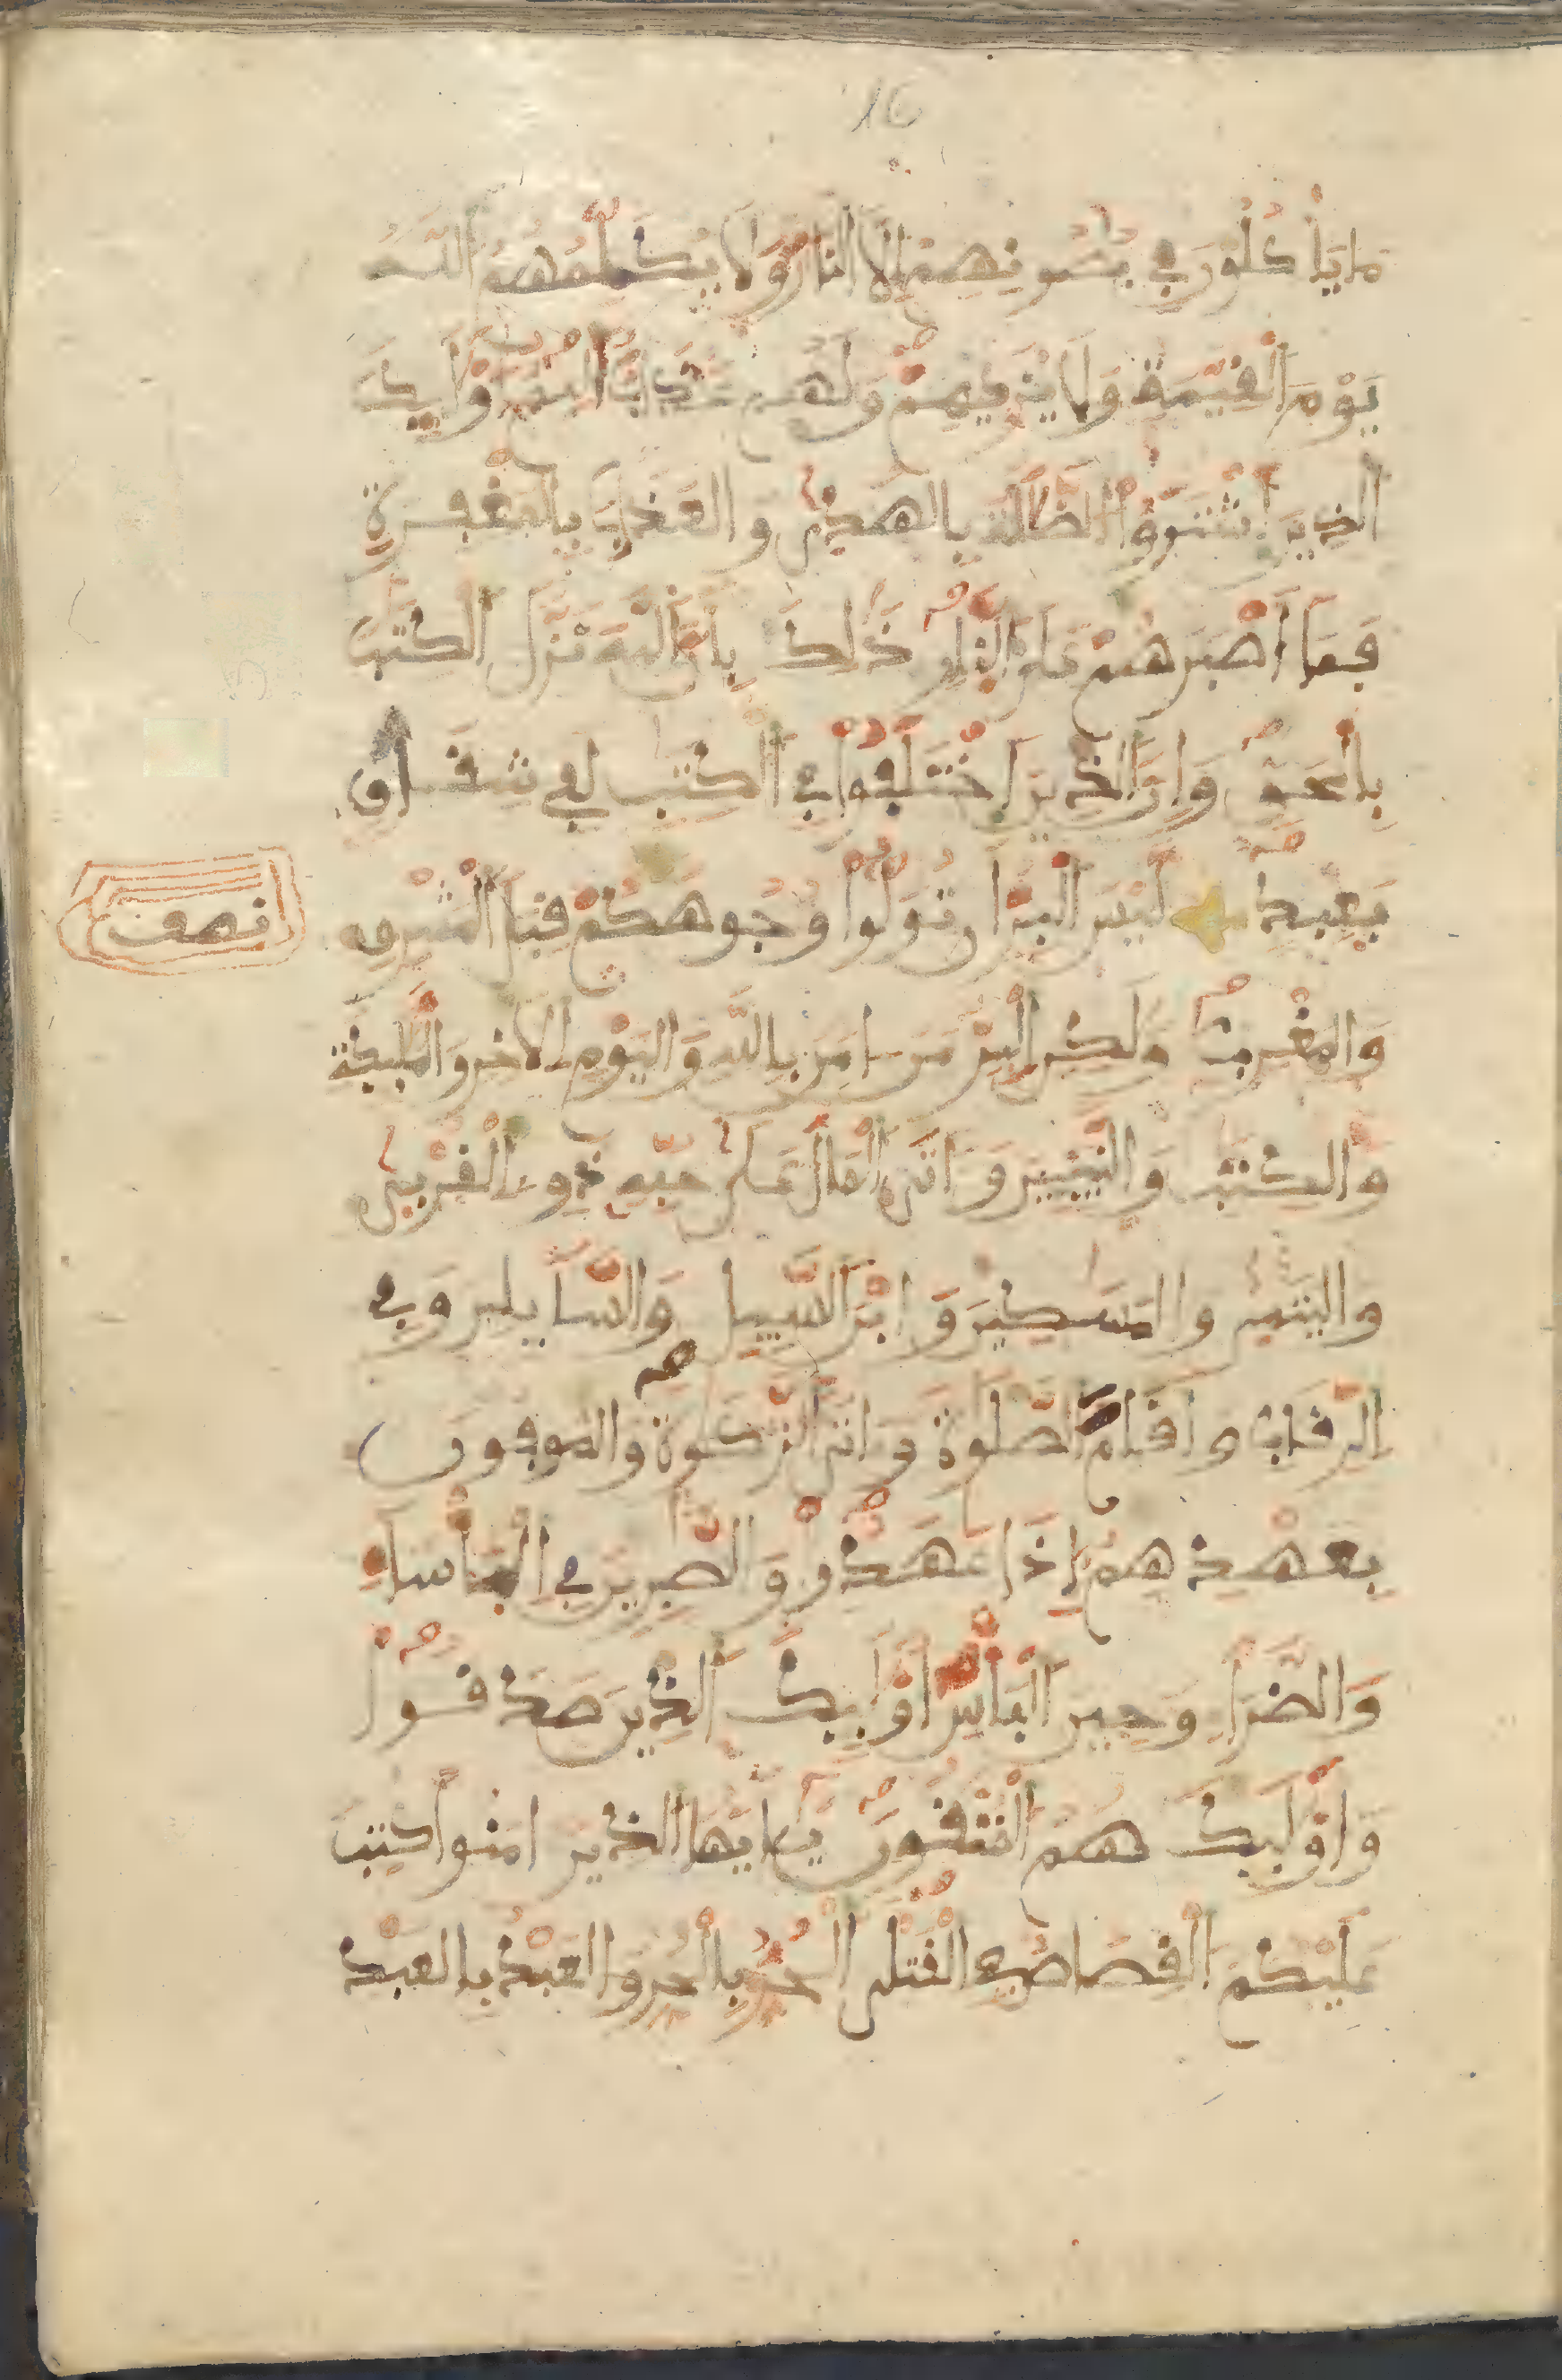 16
مَا يَأْكُلُونَ فِي بُطُونِهِمْ إِلَّا النَّارَ وَلَا يُكَلِّمُهُمُ اللَّهُ
يَوْمَ الْقِيَٰمَةِ وَلَا يُزَكِّيهِمْ وَلَهُمْ عَذَابٌ أَلِيمٌ أُوْلَٰئِكَ
الَّذِينَ اشْتَرَوُا الضَّلَٰلَةَ بِالْهُدَىٰ وَالْعَذَابَ بِالْمَغْفِرَةِ
فَمَا أَصْبَرَهُمْ عَلَى النَّارِ ذَٰلِكَ بِأَنَّ اللَّهَ نَزَّلَ الْكِتَٰبَ
بِالْحَقِّ وَإِنَّ الَّذِينَ اخْتَلَفُوا فِي الْكِتَٰبِ لَفِي شِقَاقٍ
بَعِيدٍ لَيْسَ الْبِرُّ أَن تُوَلُّوا وُجُوهَكُمْ قِبَلَ الْمَشْرِقِ
نصف
وَالْمَغْرِبِ وَلَٰكِنِ الْبِرُّ مَنَ امَنَ بِاللَّهِ وَالْيَوْمِ الْأَخِرِ وَالْمَلَٰئِكَةِ
وَالْكِتَٰبِ وَالنَّبِيِّينَ وَءَاتَى الْمَالَ عَلَىٰ حُبِّهِ ذَوِي الْقُرْبَىٰ
وَالْيَتَٰمَىٰ وَالْمَسَٰكِينَ وَابْنَ السَّبِيلِ وَالسَّائِلِينَ وَفِي
الرِّقَابِ وَأَقَامَ الصَّلَوٰةَ وَءَاتَى الزَّكَوٰةَ وَالْمُوفُونَ
بِعَهْدِهِمْ إِذَا عَٰهَدُوا وَالصَّٰبِرِينَ فِي الْبَأْسَاءِ
وَالضَّرَّاءِ وَحِينَ الْبَأْسِ أُوْلَٰئِكَ الَّذِينَ صَدَقُوا
وَأُوْلَٰئِكَ هُمُ الْمُتَّقُونَ يَٰأَيُّهَا الَّذِينَ ءَامَنُوا كُتِبَ
عَلَيْكُمُ الْقِصَاصُ فِي الْقَتْلَى الْحُرُّ بِالْحُرِّ وَالْعَبْدُ بِالْعَبْدِ